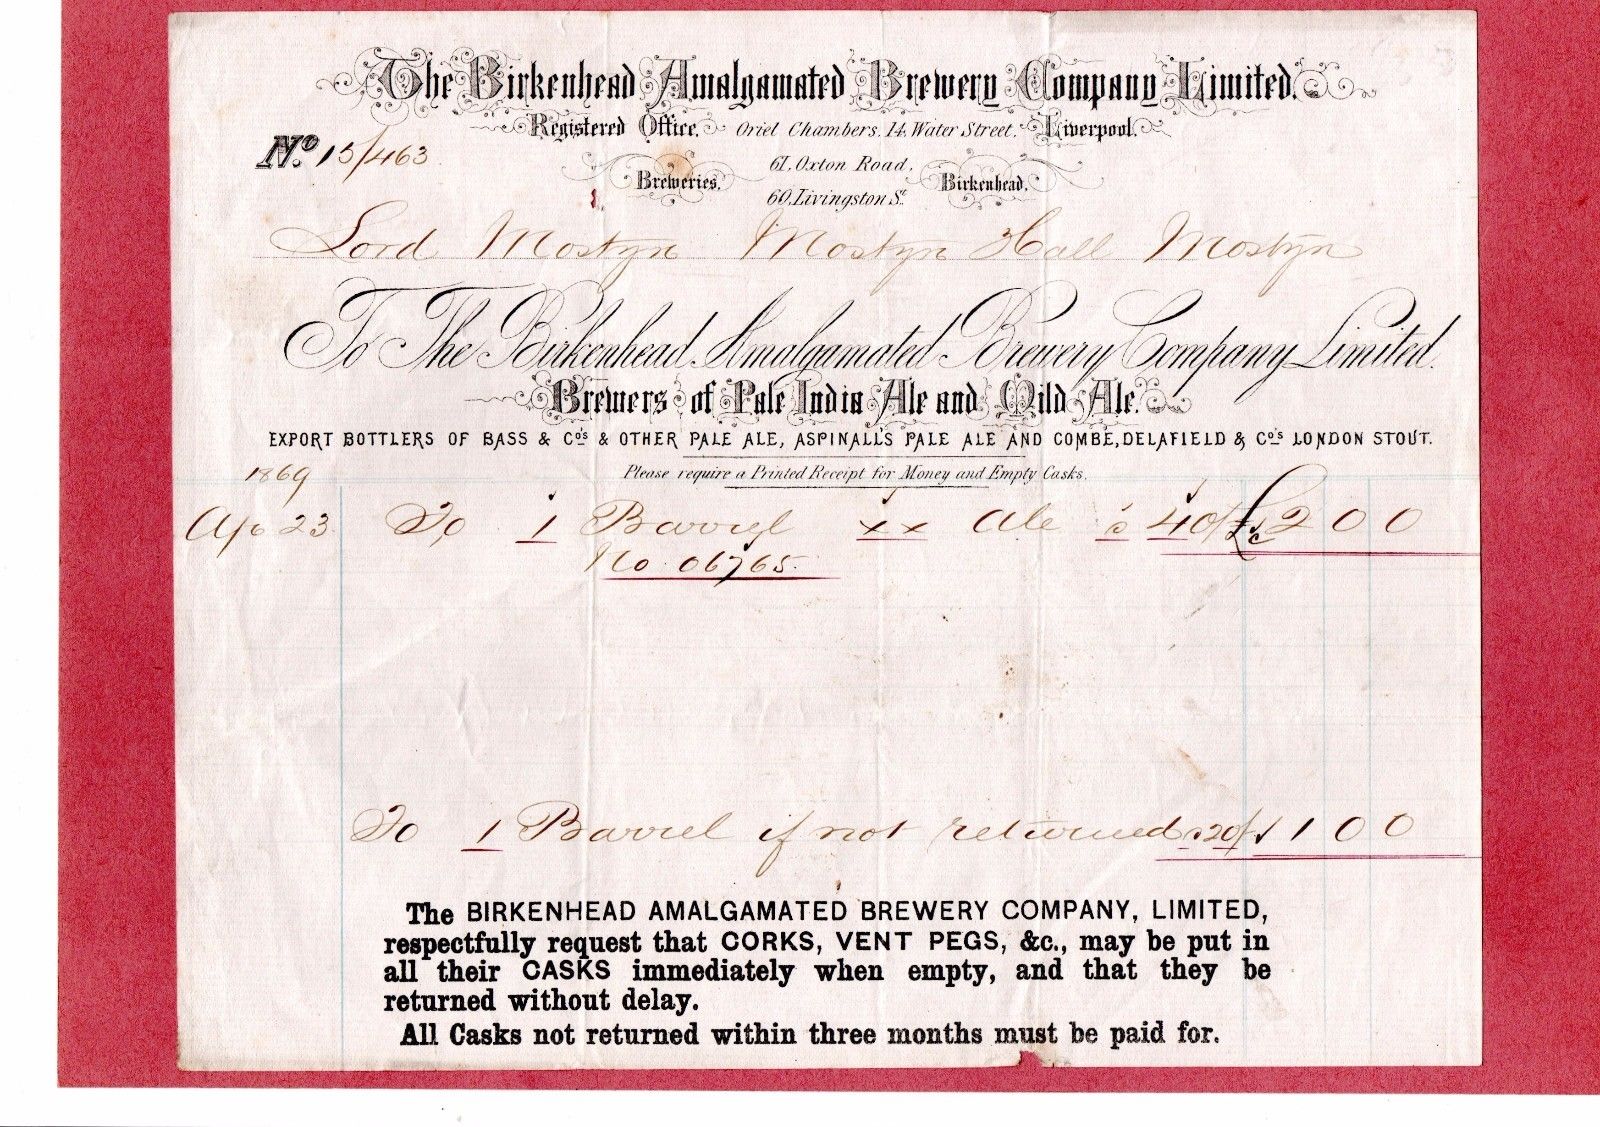 The Birkenhead Amalgamated Brewery Company Limited.
Registered Office. Oriel Chambers. 14, Water Street. Liverpool.
No. 15/463
61, Oxton Road,
Breweries, Birkenhead.
60, Livingston St.
Lord Mostyn Mostyn Hall Mostyn
To The Birkenhead Amalgamated Brewery Company Limited.
Brewers of Pale India Ale and Mild Ale.
EXPORT BOTTLERS OF BASS & Co's & OTHER PALE ALE, ASPINALL'S PALE ALE AND COMBE, DELAFIELD & Co's LONDON STOUT.
1869 Please require a Printed Receipt for Money and Empty Casks.
Ap 23 To 1 Barrel xx Ale 40/ £ 2 0 0
No 06765
To 1 Barrel if not returned 20/ 1 0 0
The BIRKENHEAD AMALGAMATED BREWERY COMPANY, LIMITED,
respectfully request that CORKS, VENT PEGS, &c., may be put in
all their CASKS immediately when empty, and that they be
returned without delay.
All Casks not returned within three months must be paid for.